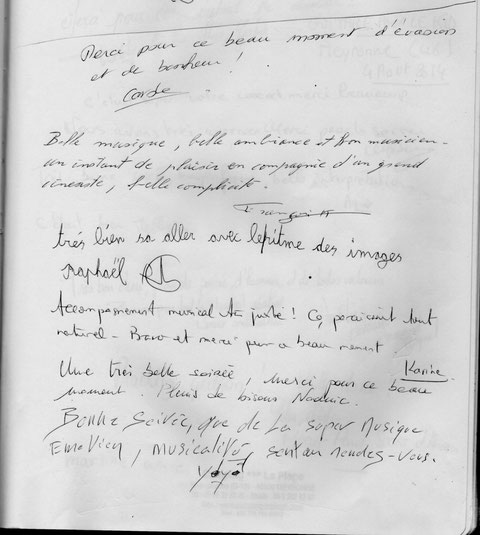 Merci pour ce beau moment d'évasion
et de bonheur !
Carole
Belle musique, belle ambiance et bon musicien.
un instant de plaisir en compagnie d'un grand
cinéaste, belle complicité.
très bien sa aller avec lepitme des images
Raphaël
Accompagnement musical très juste ! Ça paraissait tout
naturel - Bravo et merci pour ce beau moment.
Karine
Une très belle soirée, merci pour ce beau
moment. Pleins de bisous Nadine.
Bonne Soirée, que de La super Musique
Emotion, Musicalité, sont au rendez-vous.
Yoyo